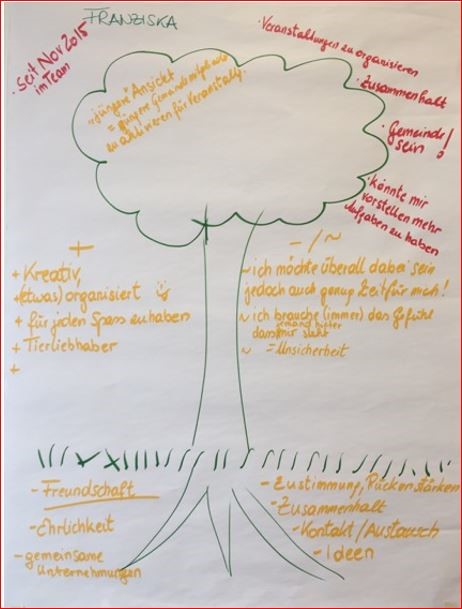 FRANZISKA
· seit Nov 2015
im Team
· Veranstaltungen zu organisieren
· Zusammenhalt
· Gemeinde
sein!
· könnte mir
vorstellen mehr
Aufgaben zu haben
"jüngere" Ansicht
= jüngere Gemeindemitglieder
zu aktivieren für Veranstalt.
+
+ Kreativ,
+ (etwas) organisiert
+ für jeden Spass zu haben
+ Tierliebhaber
+
- / ~
~ ich möchte überall dabei sein
jedoch auch genug Zeit für mich!
~ ich brauche (immer) das Gefühl
dass jemand hinter
mir steht
~ = Unsicherheit
- Freundschaft
- Ehrlichkeit
- gemeinsame
Unternehmungen
- Zustimmung, Rücken stärken
- Zusammenhalt
- Kontakt / Austausch
- Ideen